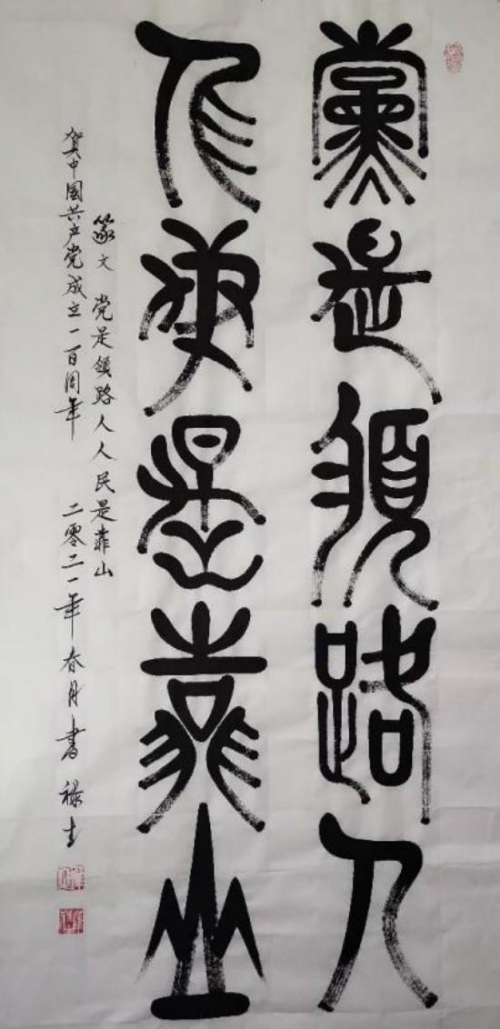 黨是領路人
人民是靠山
篆文 党是領路人人民是靠山
賀中國共产党成立一百周年 二零二一年春月書 禄